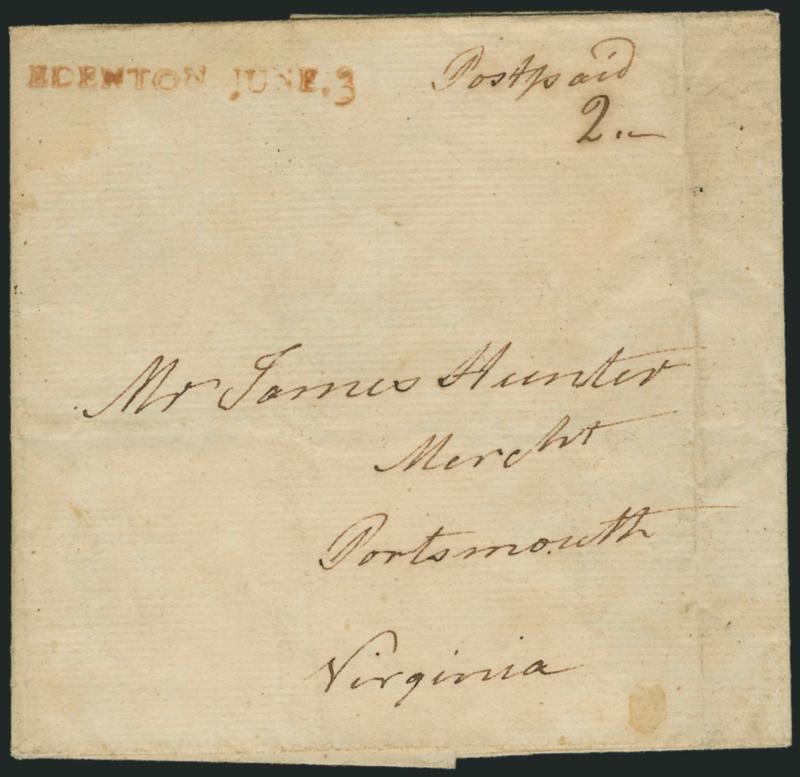 EDENTON JUNE.3
Postpaid
2.–
Mr James Hunter
Mercht
Portsmouth
Virginia